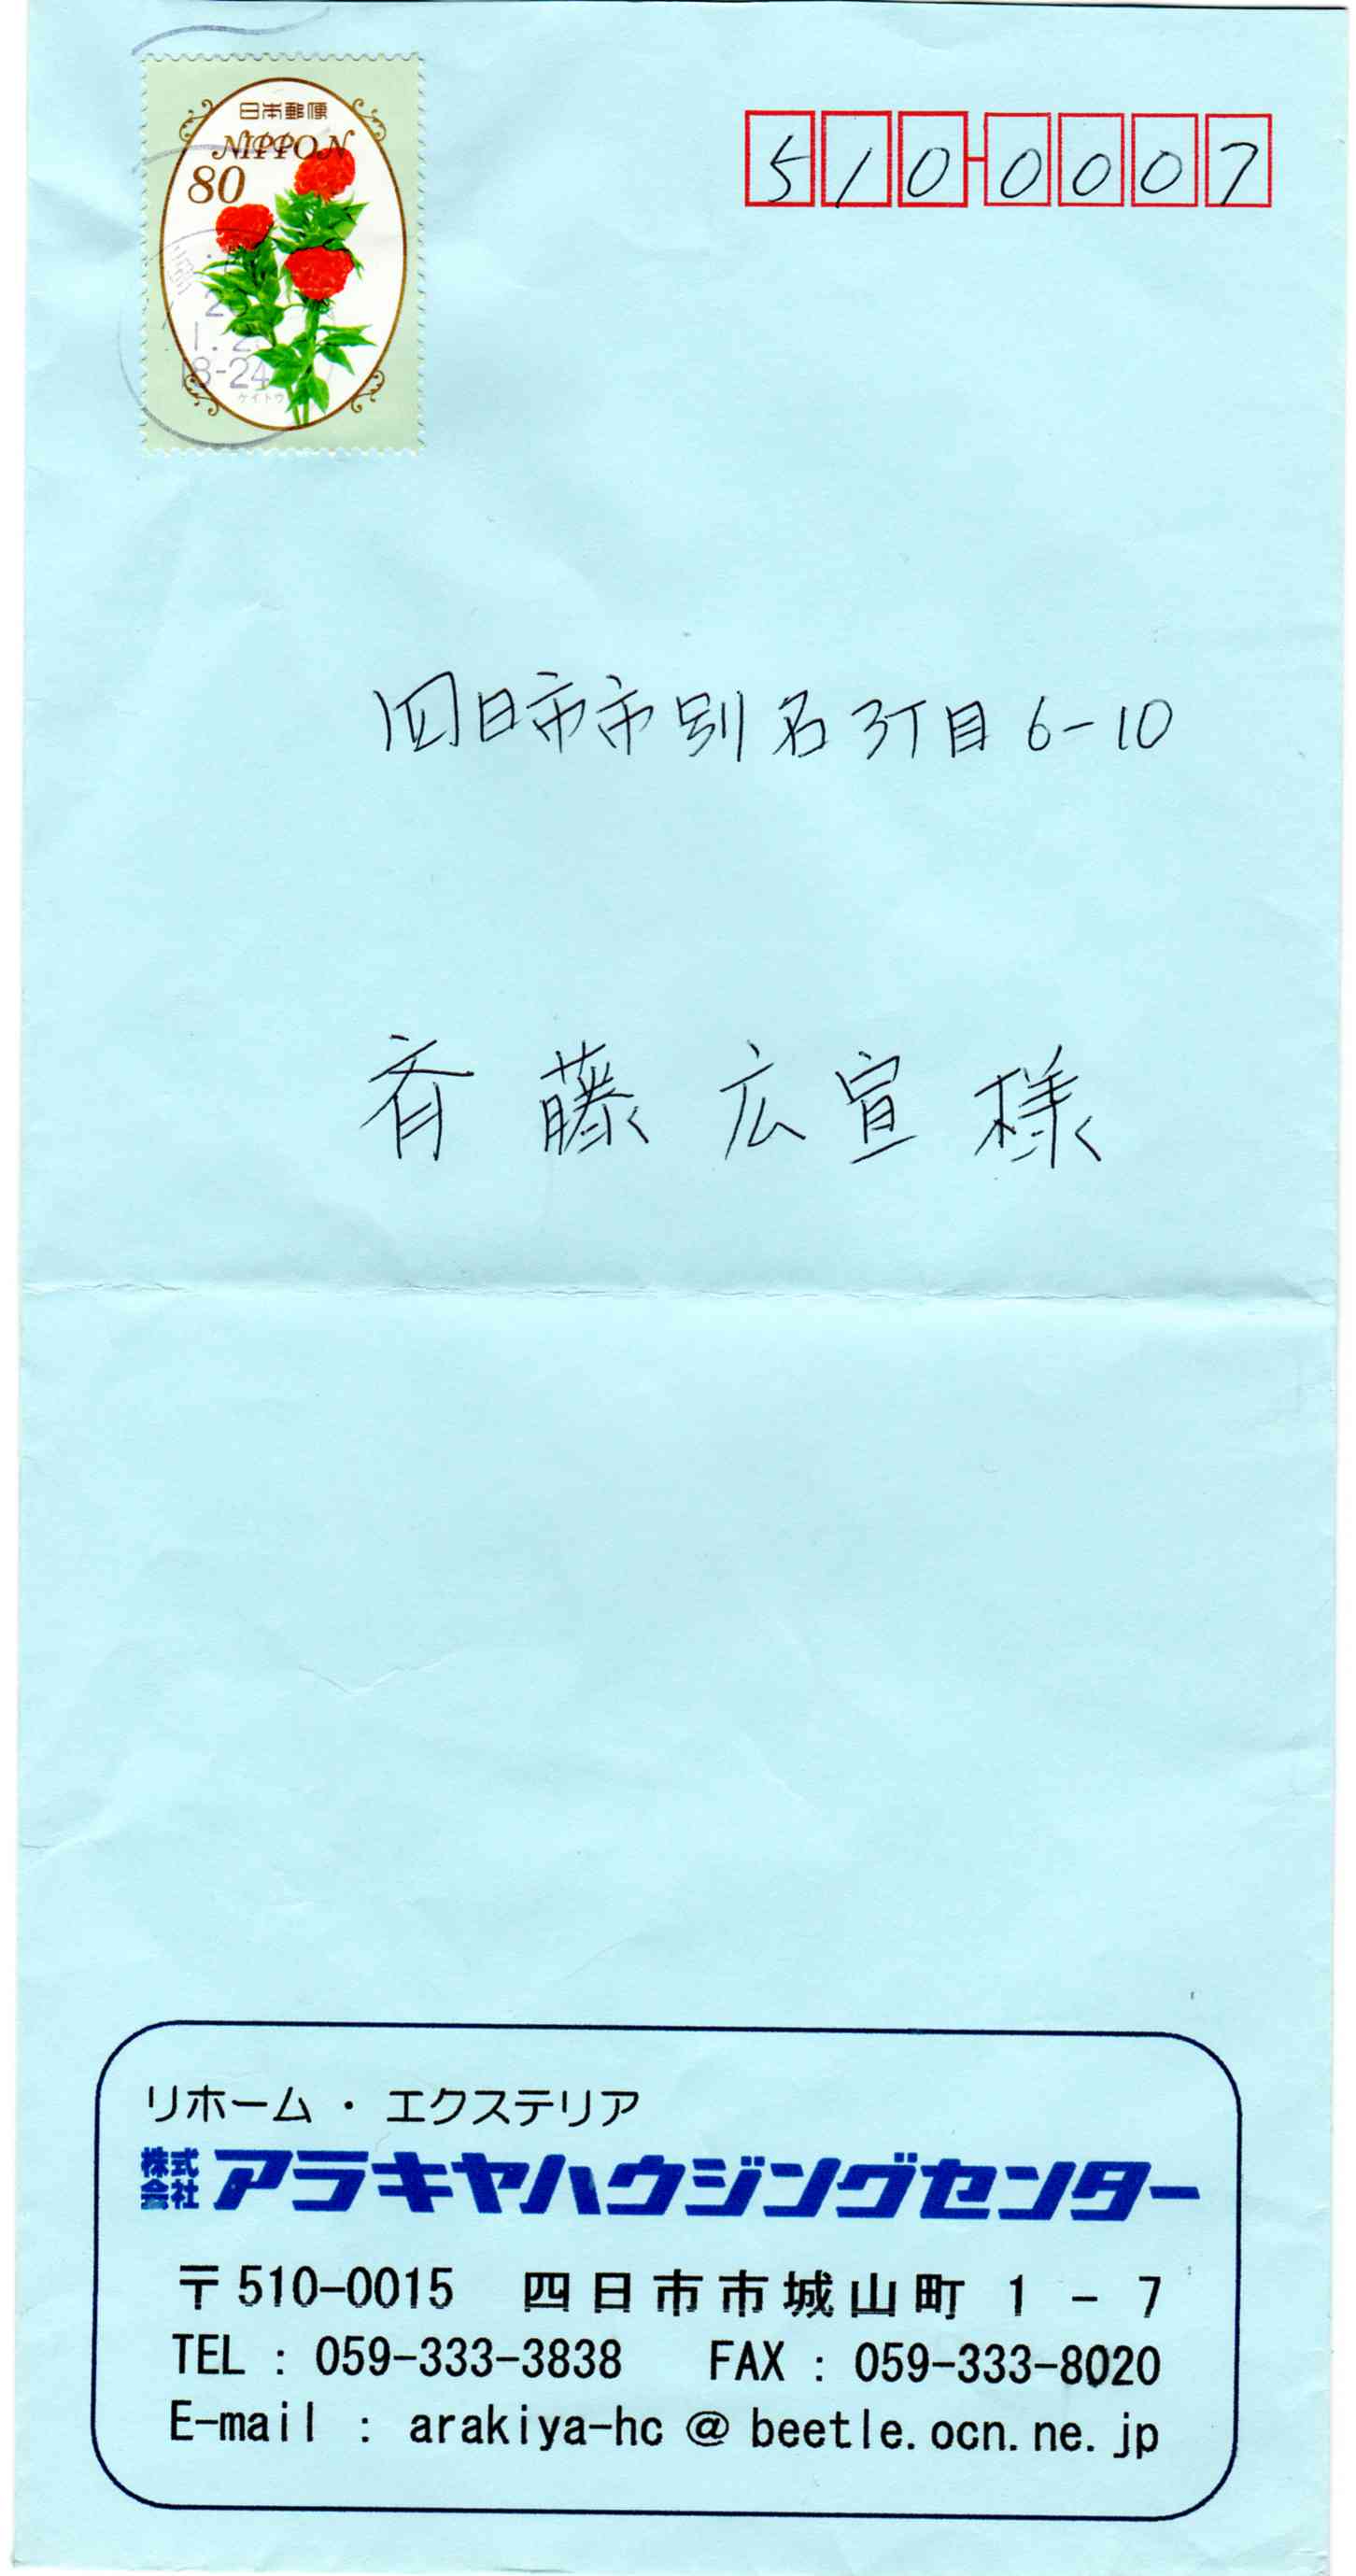 日本郵便
NIPPON
80
ケイトウ
1.2
18-24
510-0007
四日市市別名3丁目6-10
斉藤広宣様
リホーム・エクステリア
株式会社アラキヤハウジングセンター
〒510-0015 四日市市城山町 1-7
TEL : 059-333-3838 FAX : 059-333-8020
E-mail : arakiya-hc @ beetle.ocn.ne.jp